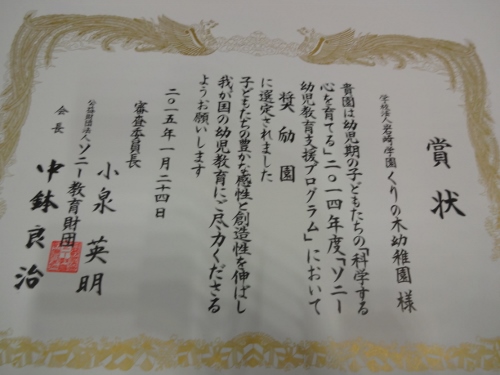 賞状
学校法人岩崎学園くりの木幼稚園 様
貴園は幼児期の子どもたちの「科学する
心を育てる」二〇一四年度「ソニー
幼児教育支援プログラム」において
奨励園
に選定されました
子どもたちの豊かな感性と創造性を伸ばし
我が国の幼児教育にご尽力くださる
ようお願いします
二〇一五年一月二十四日
審査委員長 小泉英明
公益財団法人ソニー教育財団
会長 中鉢良治